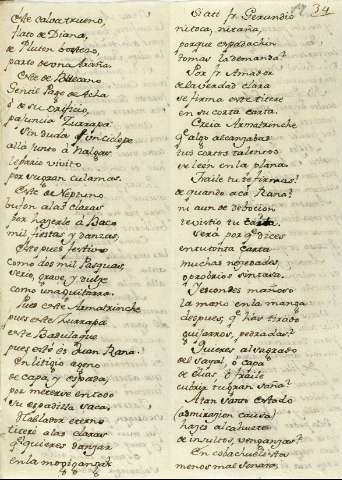 34
Este calatrueno,
flato de Diana,
de Pluton bostezo,
parto de una Araña.
Este de Vulcano
Gentil Page de Acha
ó de su orificio,
pajuncia Zurrapa.
Sin duda un ciclope
allá junto à nalgas
le pario vivito
por su gran culamas.
Este de Neptuno
bufon a las claras
por hazerle à Baco
mil fiestas y danzas;
Este pues festivo
como dos mil Pasquas,
serio, grave, y dulze
como una guitarra.
Pues este Armatrinche
pues este Zurrapa
este Badulaque
pues este es Juan Rana.
En litigio ageno
de capa, y espada,
por meterse en todo
su espadilla saca.
Hablador eterno
titere a las claras
q quieres danzar
en la mogiganga?
Si al P. fr. Gerundio
ni toca, ni taña,
porque espadachin
tomas la demanda?
Por fr. Amador
de la verdad clara
se firma este titere
en su corta carta.
Oyga Armatrinche
q algo alcanzaba
tus cortos talentos
se leen en la plana.
Fraile te firmas?
de quando acá Rana?
ni aun de devocion
revistio tu
Será por q dices
en tu tonta carta
muchas nezedades,
oprobrios sin tasa.
Y escondes mañoso
la mano en la manga
despues, q has tirado
guijarros, pedradas?
Quieres al sagrado
del sayal, ó capa
de Elias, ó fraile
cubrir tu gran saña?
A tan santo estado
(admirazion causa)
hazes alcahuete
de insultos, venganzas?
En cobachuelista
menos mal sonara,